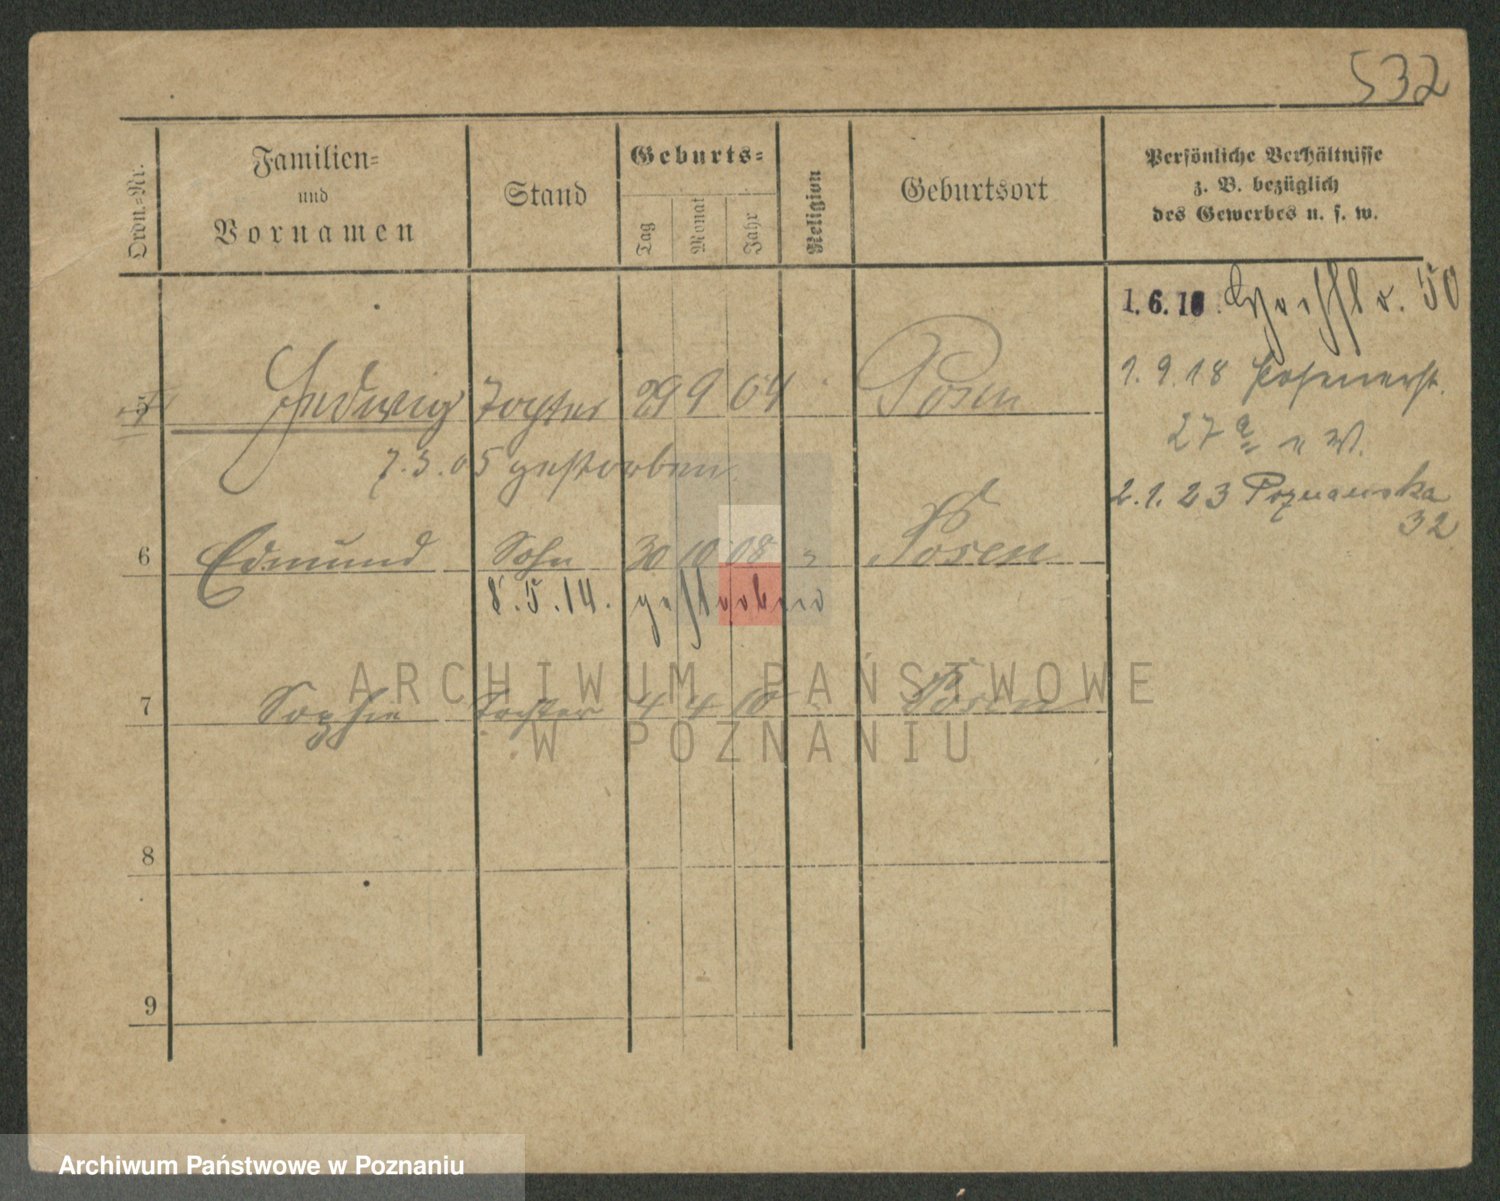 532
Ordn.-Nr. Familien- und Vornamen Stand Geburts- Tag Monat Jahr Religion Geburtsort Persönliche Verhältnisse z. B. bezüglich des Gewerbes u. s. w.
1.6.18 50
5 Hedwig Tochter 29 9 04 Posen
1.9.18 Posenerst.
27a
7.3.05 gestorben
2.1.23 Poznanska
32
6 Edmund Sohn 30 10 08 " Posen
8.5.14. gestorben
ARCHIWUM PAŃSTWOWE
7 Sophie Tochter 4 4 10 Posen
W POZNANIU
8
9
Archiwum Państwowe w Poznaniu